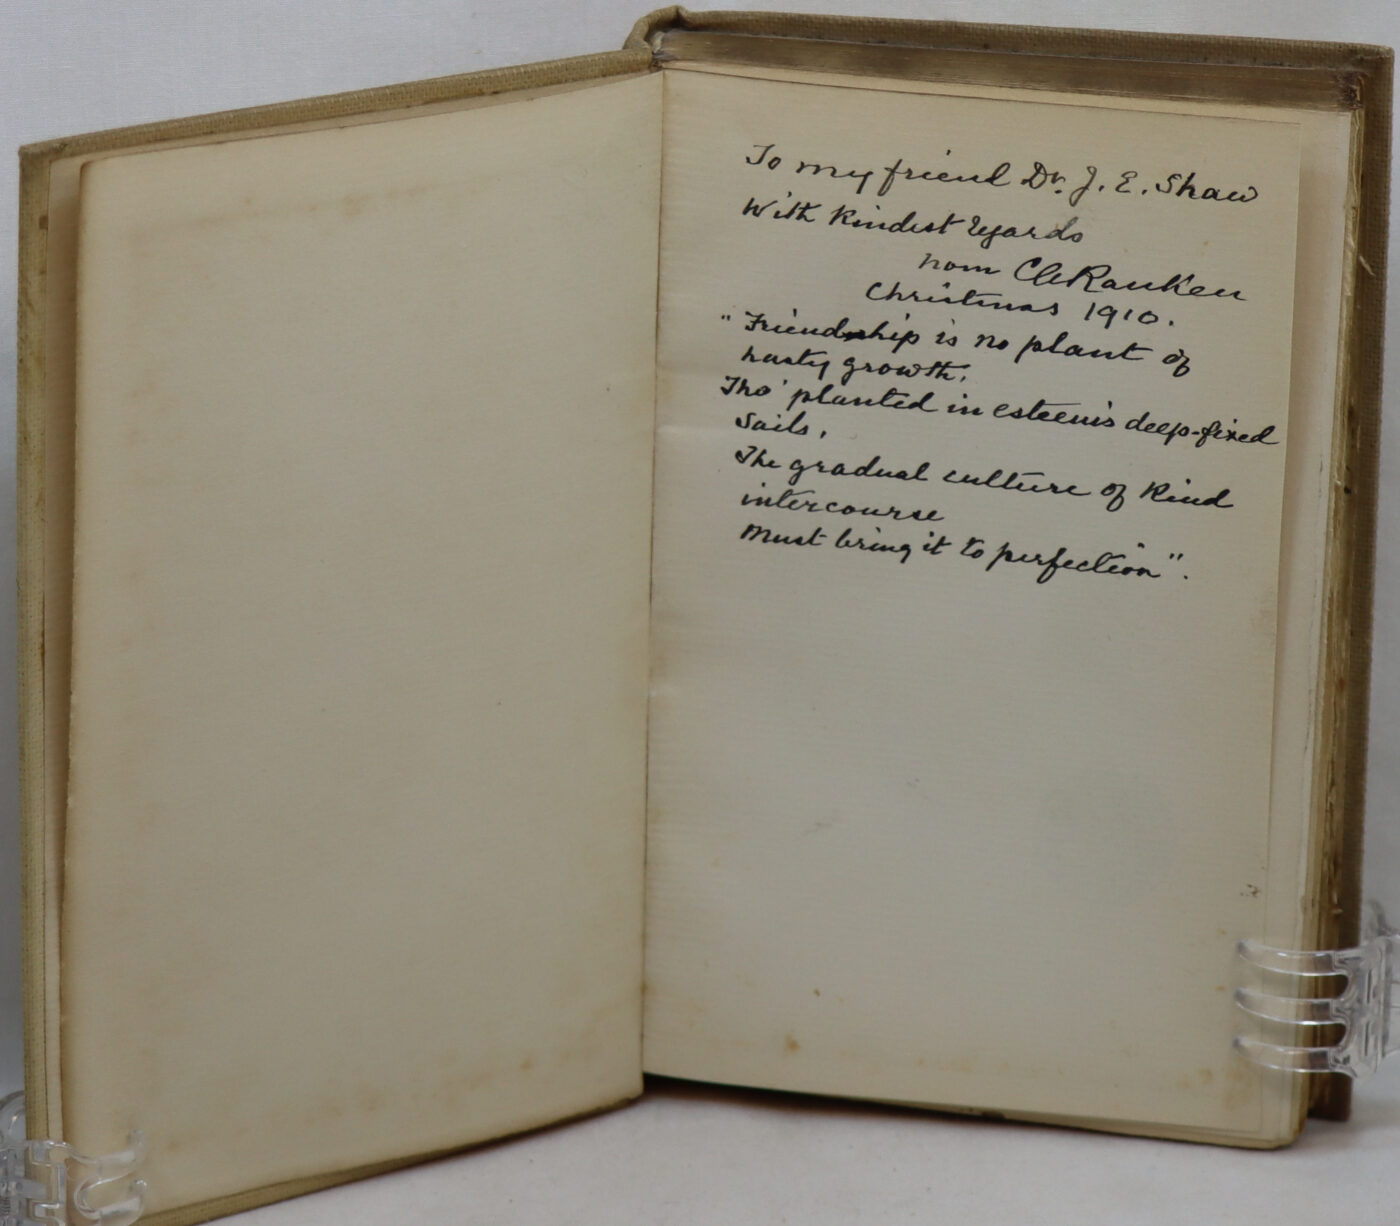 To my friend Dr. J. E. Shaw
With kindest regards
from C A Ranken
Christmas 1910.
"Friendship is no plant of
hasty growth,
Tho' planted in esteem's deep-fixed
soils,
The gradual culture of kind
intercourse
Must bring it to perfection".